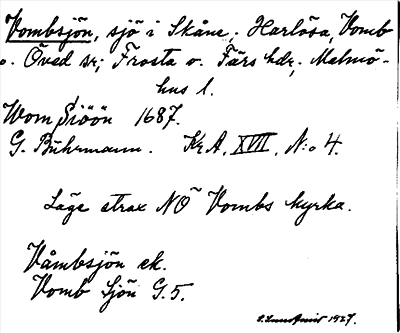 Vombsjön, sjö i Skåne; Harlösa, Vomb
o. Öved sr; Frosta o. Färs hdr; Malmö-
hus l.
Wom Siöön 1687.
G. Bührmann. KrA, XVIII, N:o 4.
Läge strax NÖ Vombs kyrka.
Våmbsjön ek.
Vomb Sjön G.5.
1927.